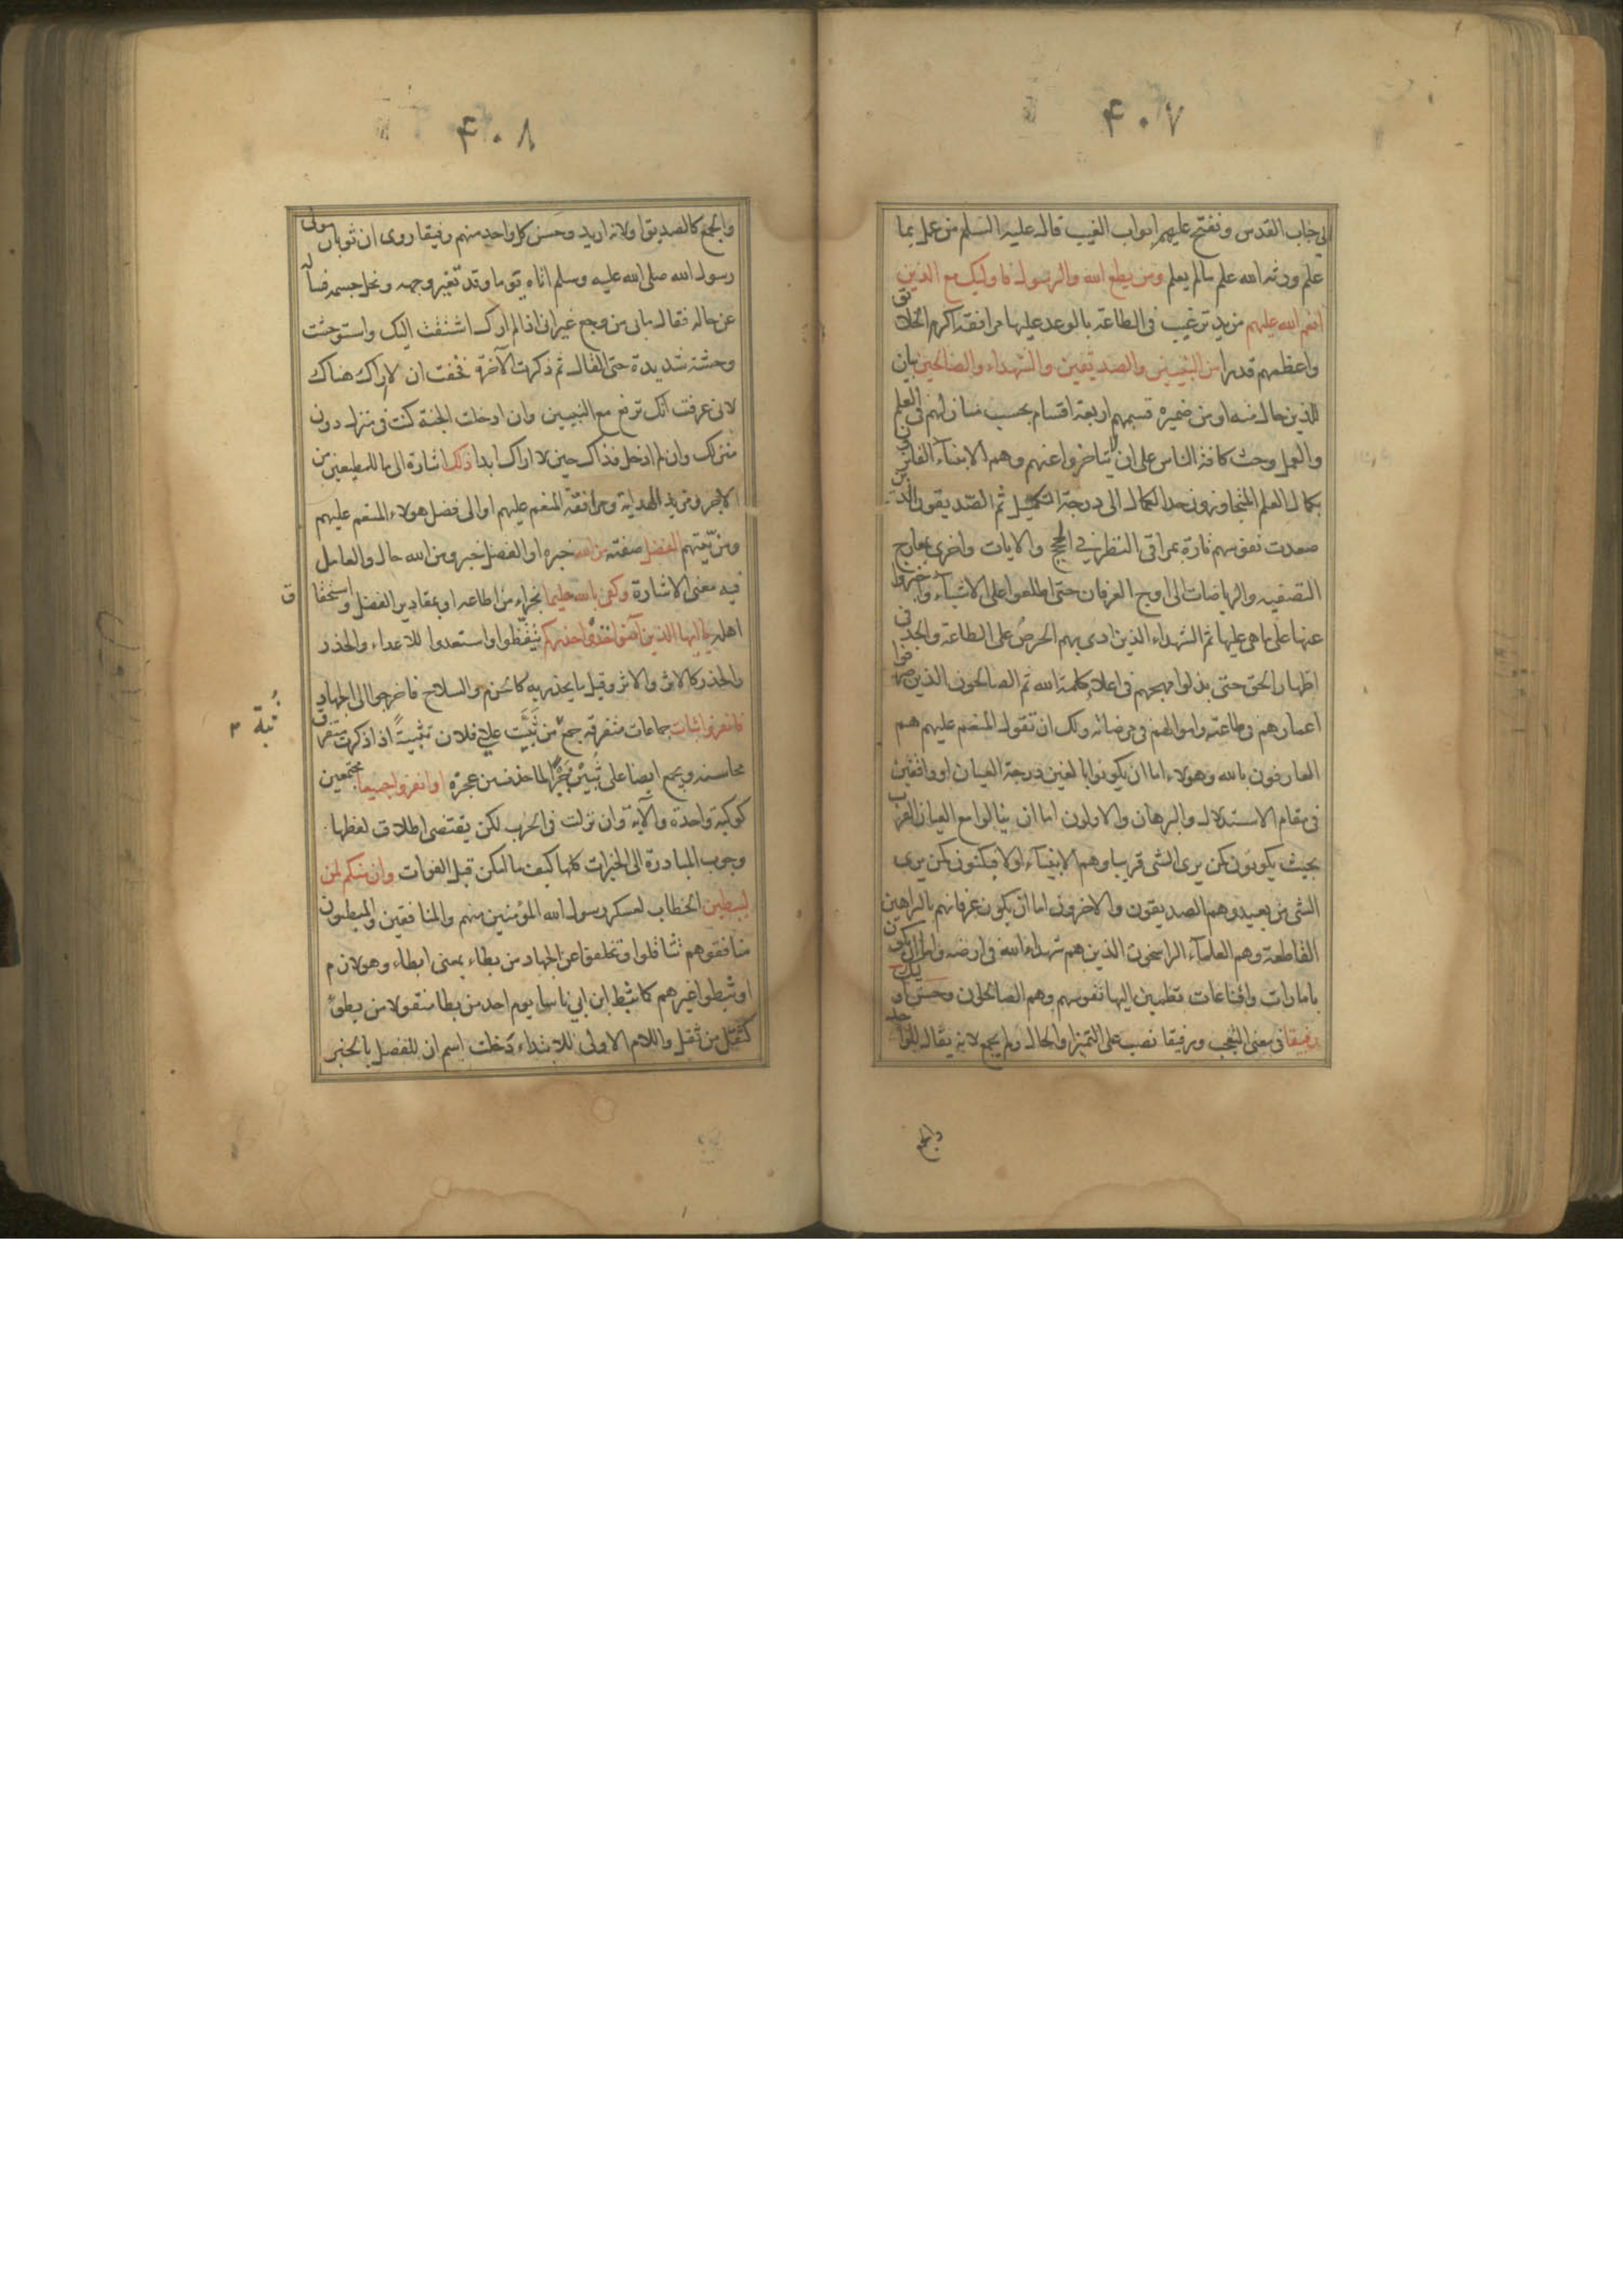 ۴۰۷
الى جناب القدس ونفتح عليهم ابواب الغيب قال عليه السلم من عمل بما
علم ورثه الله علم مالم يعلم ومن يطع الله والرسول فاولئك مع الذين
انعم الله عليهم مزيد ترغيب فى الطاعة بالوعد عليها مرافقة اكرم الخلائق
واعظمهم قدرا من النبيين والصديقين والشهداء والصالحين بيان
للذين حال منه او من ضميره قسمهم اربعة اقسام بحسب منازلهم فى العلم
والعمل وحث كافة الناس على ان لا يتاخروا عنهم وهم الانبياء الفائزون
بكمال العلم المتجاوزون حد الكمال الى درجة التكميل ثم الصديقون الذين
صعدت نفوسهم تارة بمراقى النظر فى الحجج والايات واخرى بمعارج
التصفيه والرياضات الى اوج العرفان حتى اطلعوا على الاشياء واخبروا
عنها على ما هى عليها ثم الشهداء الذين ادى بهم الحرص على الطاعة والجد فى
اظهار الحق حتى بذلوا مهجهم فى اعلاء كلمة الله ثم الصالحون الذين صرفوا
اعمارهم فى طاعته واموالهم فى مرضاته ولك ان تقول المنعم عليهم هم
العارفون بالله وهولاء اما ان يكونوا بالغين درجة العيان او واقفين
فى مقام الاستدلال والبرهان والاولون اما ان ينالوا مع العيان القرب
بحيث يكونون كمن يرى الشى قريبا وهم الانبياء اولا فيكنون كمن يرى
الشى من بعيد وهم الصديقون والاخرون اما ان يكون عرفانهم بالبراهين
القاطعة وهم العلماء الراسخون الذين هم شهداء الله فى ارضه واما ان يكون
بامارات واقناعات تطمئن اليها نفوسهم وهم الصالحون وحسن اولئك
رفيقا فى معنى التعجب ورفيقا نصب على التميز او الحال ولم يجمع لانه يقال للواحد
والجمع
۴۰۸
والجمع كالصديق اولانه اريد وحسن كل واحد منهم رفيقا روى ان ثوبان مولى
رسول الله صلى الله عليه وسلم اتاه يوما وقد تغير وجهه ونحل جسمه فساله
عن حاله فقال مابى من وجع غير انى اذا لم ارك اشتقت اليك واستوحشت
وحشة شديدة حتى القاك ثم ذكرت الآخرة فخفت ان لا اراك هناك
لانى عرفت انك ترفع مع النبيين وان ادخلت الجنة كنت فى منزل دون
منزلك وان لم ادخل فذاك حين لا اراك ابدا ذلك اشارة الى ما للمطيعين من
الاجر ومزيد الهداية ومرافقة المنعم عليهم او الى فضل هولاء المنعم عليهم
ومزيتهم الفضل صفته من الله خبره او الفضل خبر ومن الله حال والعامل
فيه معنى الاشارة وكفى بالله عليما بجزاء من اطاعه او بمقادير الفضل واستحقاق
اهله يا ايها الذين آمنوا خذوا حذركم تيقظوا واستعدوا للاعداء والحذر
والحذر كالاثر والاثر وقيل ما يحذر به كالحزم والسلاح فاخرجوا الى الجهاد
فانفروا ثبات جماعات متفرقة جمع من ثبيت على فلان تثبية اذا ذكرت متفرق
ثبة
محاسنه ويجمع ايضا على ثبين جبرا لما حذف من عجزه او انفروا جميعا مجتمعين
كوكبة واحدة والآية وان نزلت فى الحرب لكن يقتضى اطلاق لفظها
وجوب المبادرة الى الخيرات كلها كيف ما امكن قبل الفوات وان منكم لمن
ليبطين الخطاب لعسكر رسول الله المؤمنين منهم والمنافقين والمبطون
منافقوهم تثاقلوا وتخلفوا عن الجهاد من بطاء بمعنى ابطاء وهو لازم
او ثبطوا غيرهم كما ثبط ابن ابي ناسا يوم احد من بطا منقولا من بطؤ
كثقل من ثقل واللام الاولى للابتداء دخلت اسم ان للفصل بالخبر